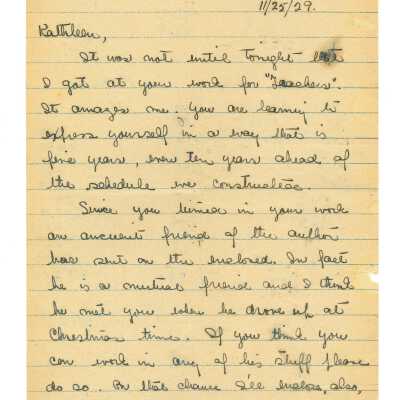 11/25/29.
Kathleen,
It was not until tonight that
I got at your work for "Teachers".
It amazes me. You are learning to
express yourself in a way that is
five years, even ten years ahead of
the schedule we constructed.
Since you turned in your work
an ancient friend of the author
has sent on the enclosed. In fact
he is a mutual friend and I think
he met you when he drove up at
Christmas time. If you think you
can work in any of his stuff please
do so. On that chance I'll enclose, also,